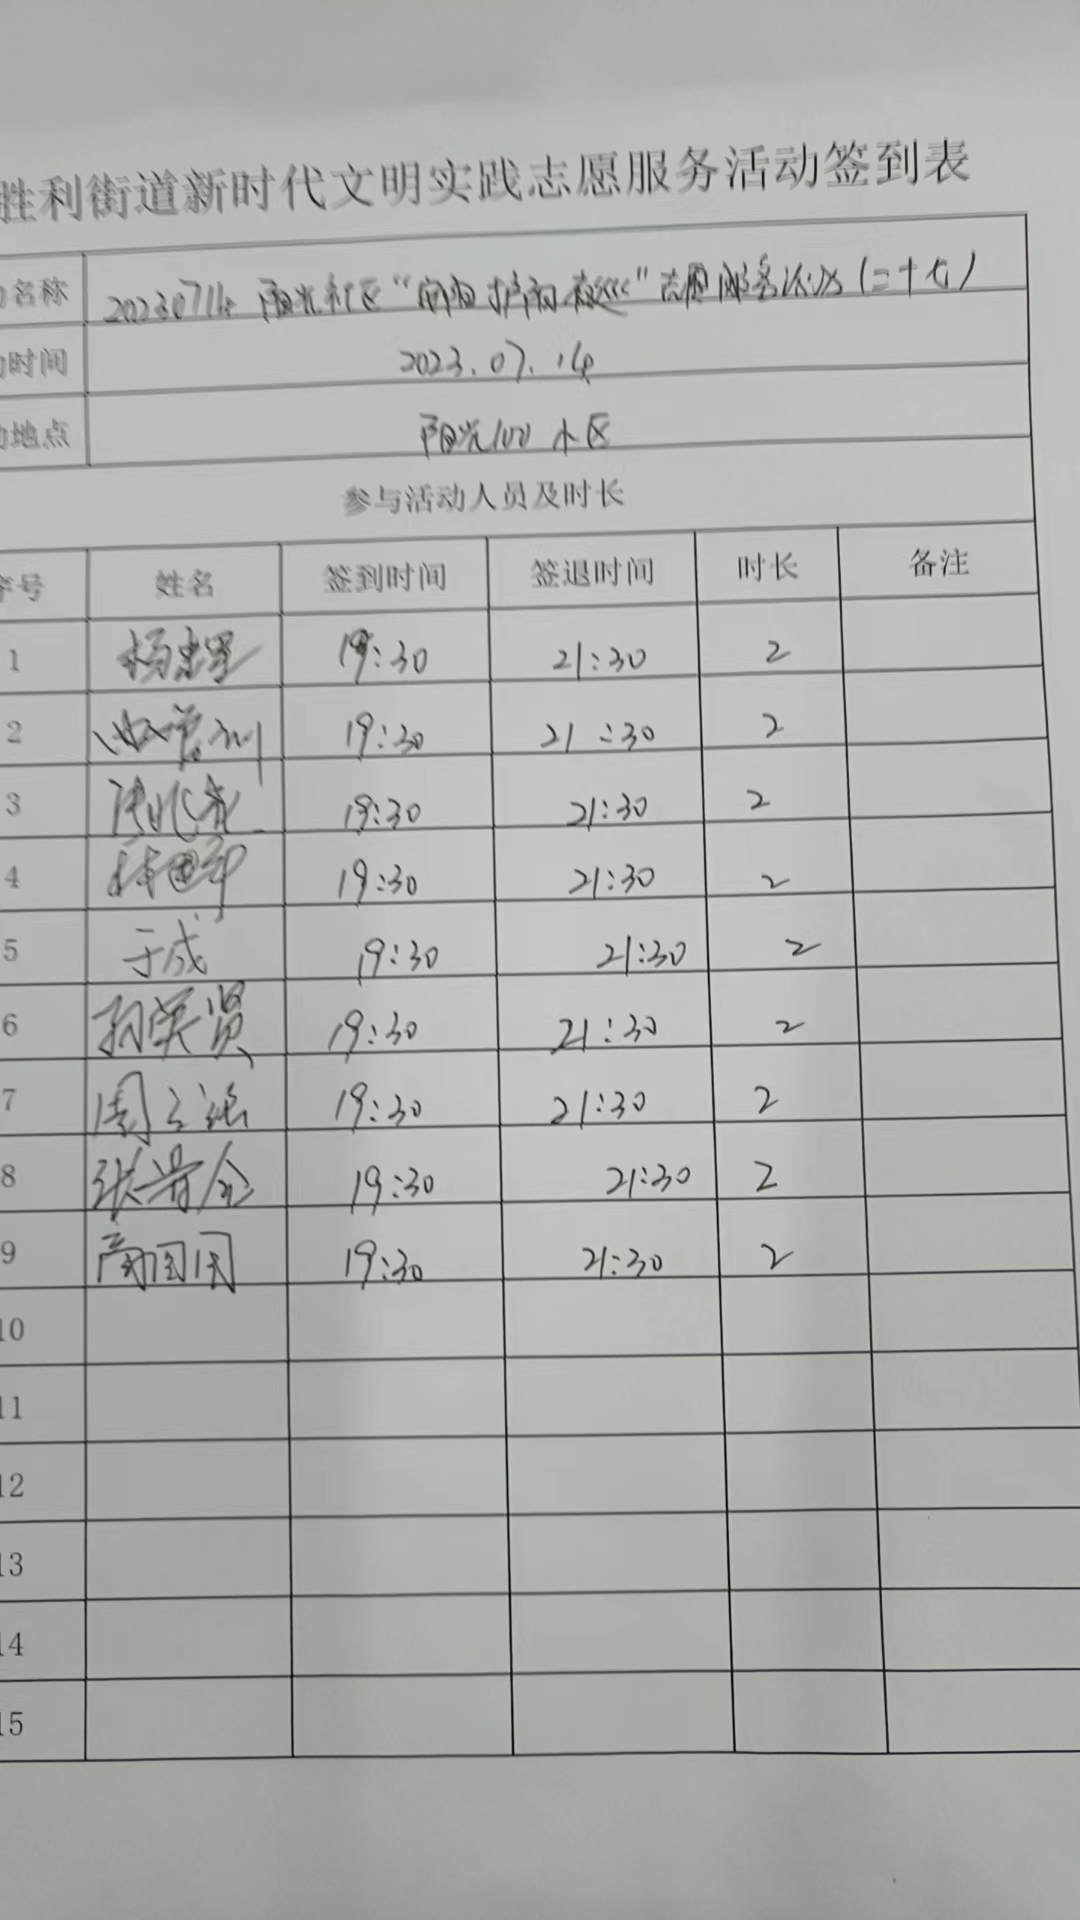 胜利街道新时代文明实践志愿服务活动签到表
名称 20230714 阳光社区“ ”志愿服务活动(二十七)
时间 2023.07.14
地点 阳光100小区
参与活动人员及时长
序号 姓名 签到时间 签退时间 时长 备注
1 杨 19:30 21:30 2
2 19:30 21:30 2
3 19:30 21:30 2
4 19:30 21:30 2
5 于成 19:30 21:30 2
6 孙英贤 19:30 21:30 2
7 周 19:30 21:30 2
8 张 19:30 21:30 2
9 19:30 21:30 2
10
11
12
13
14
15